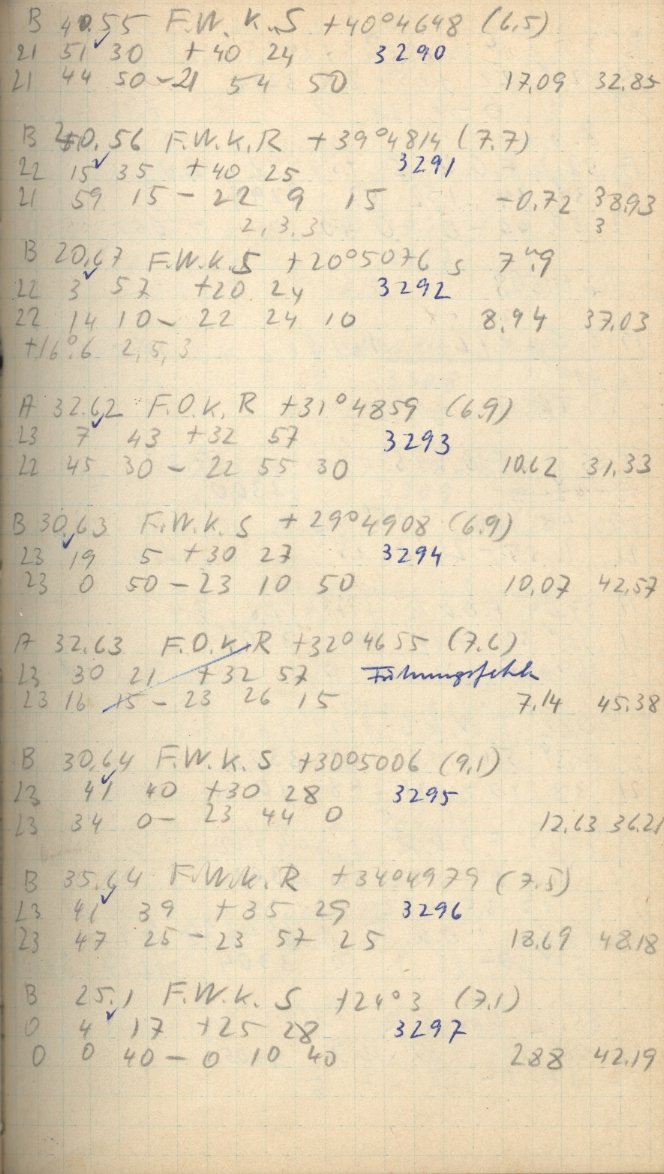 B 40.55 F.W.K.S +40°4648 (6,5)
21 51 30 +40 24 3290
21 44 50 – 21 54 50 17,09 32.85
B 40.56 F.W.K.R +39°4814 (7.7)
22 15 35 +40 25 3291
21 59 15 – 22 9 15 -0,72 38,93
2,3,3 3
B 20,67 F.W.K.S +20°5076 s 7m,9
22 3 57 +20 24 3292
22 14 10 – 22 24 10 8.94 37,03
+16°.6 2,5,3
A 32.62 F.O.K.R +31°4859 (6.9)
23 7 43 +32 57 3293
22 45 30 – 22 55 30 10.62 31,33
B 30,63 F.W.K.S +29°4908 (6.9)
23 19 5 +30 27 3294
23 0 50 – 23 10 50 10,07 42,57
A 32.63 F.O.K.R +32°4655 (7.6)
23 30 21 +32 57 Führungsfehler
23 16 15 – 23 26 15 7,14 45.38
B 30,64 F.W.K.S +30°5006 (9,1)
23 41 40 +30 28 3295
23 34 0 – 23 44 0 12,63 36.21
B 35.64 F.W.K.R +34°4979 (7.5)
23 41 39 +35 29 3296
23 47 25 – 23 57 25 18.69 48.18
B 25.1 F.W.K.S +24°3 (7,1)
0 4 17 +25 28 3297
0 0 40 – 0 10 40 2.88 42.19